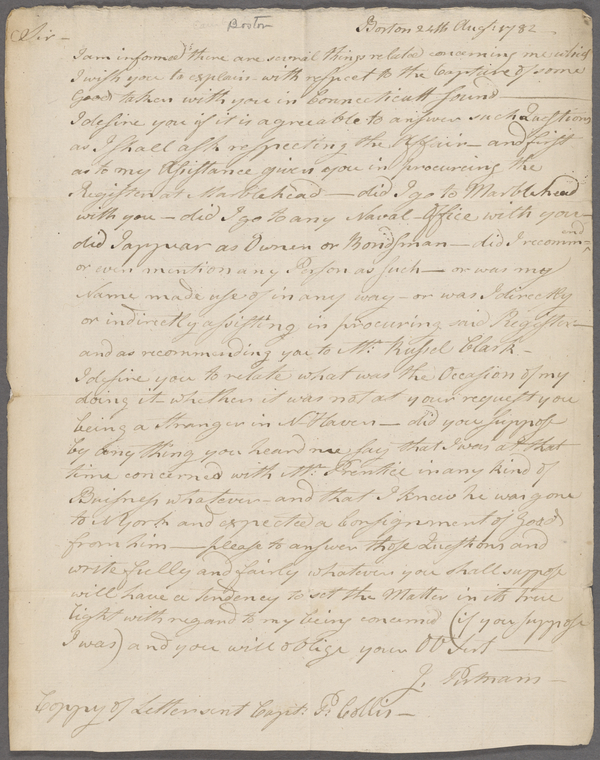 Boston
Boston 24th Augt. 1782
Sir—
I am informd there are several things related concerning me which
I wish you to explain with respect to the Capture of some
Good taken with you in Connecticutt Sound
I desire you if it is agreeable to answer such Questions
as I shall ask respecting the Affair— and first
as to my Assistance given you in procureing the
Register at Marblehead— did I go to Marblehead
with you— did I go to any Naval Office with you—
did I appear as Owner or Bondsman— did I recommend
or even mention any Person as such— or was my
Name made use of in any way— or was I directly
or indirectly assisting in procuring said Register—
and as recommending you to Mr. Russel Clark—
I desire you to relate what was the Occasion of my
doing it— whether it was not at your request you
being a Stranger in N-Haven— did you suppose
by anything you heard me say that I was at that
time concerned with Mr. Prentice in any kind of
Buisness whatever— and that I knew he was gone
to N York and expected a Consignment of Goods
from him— please to answer those Questions and
write fully and fairly whatever you shall suppose
will have a tendency to set the Matter in its true
light with regard to my being concerned (if you suppose
I was) and you will oblige your Ob Sert—
J. Putnam—
Coppy of Letter sent Capt. P. Collis—